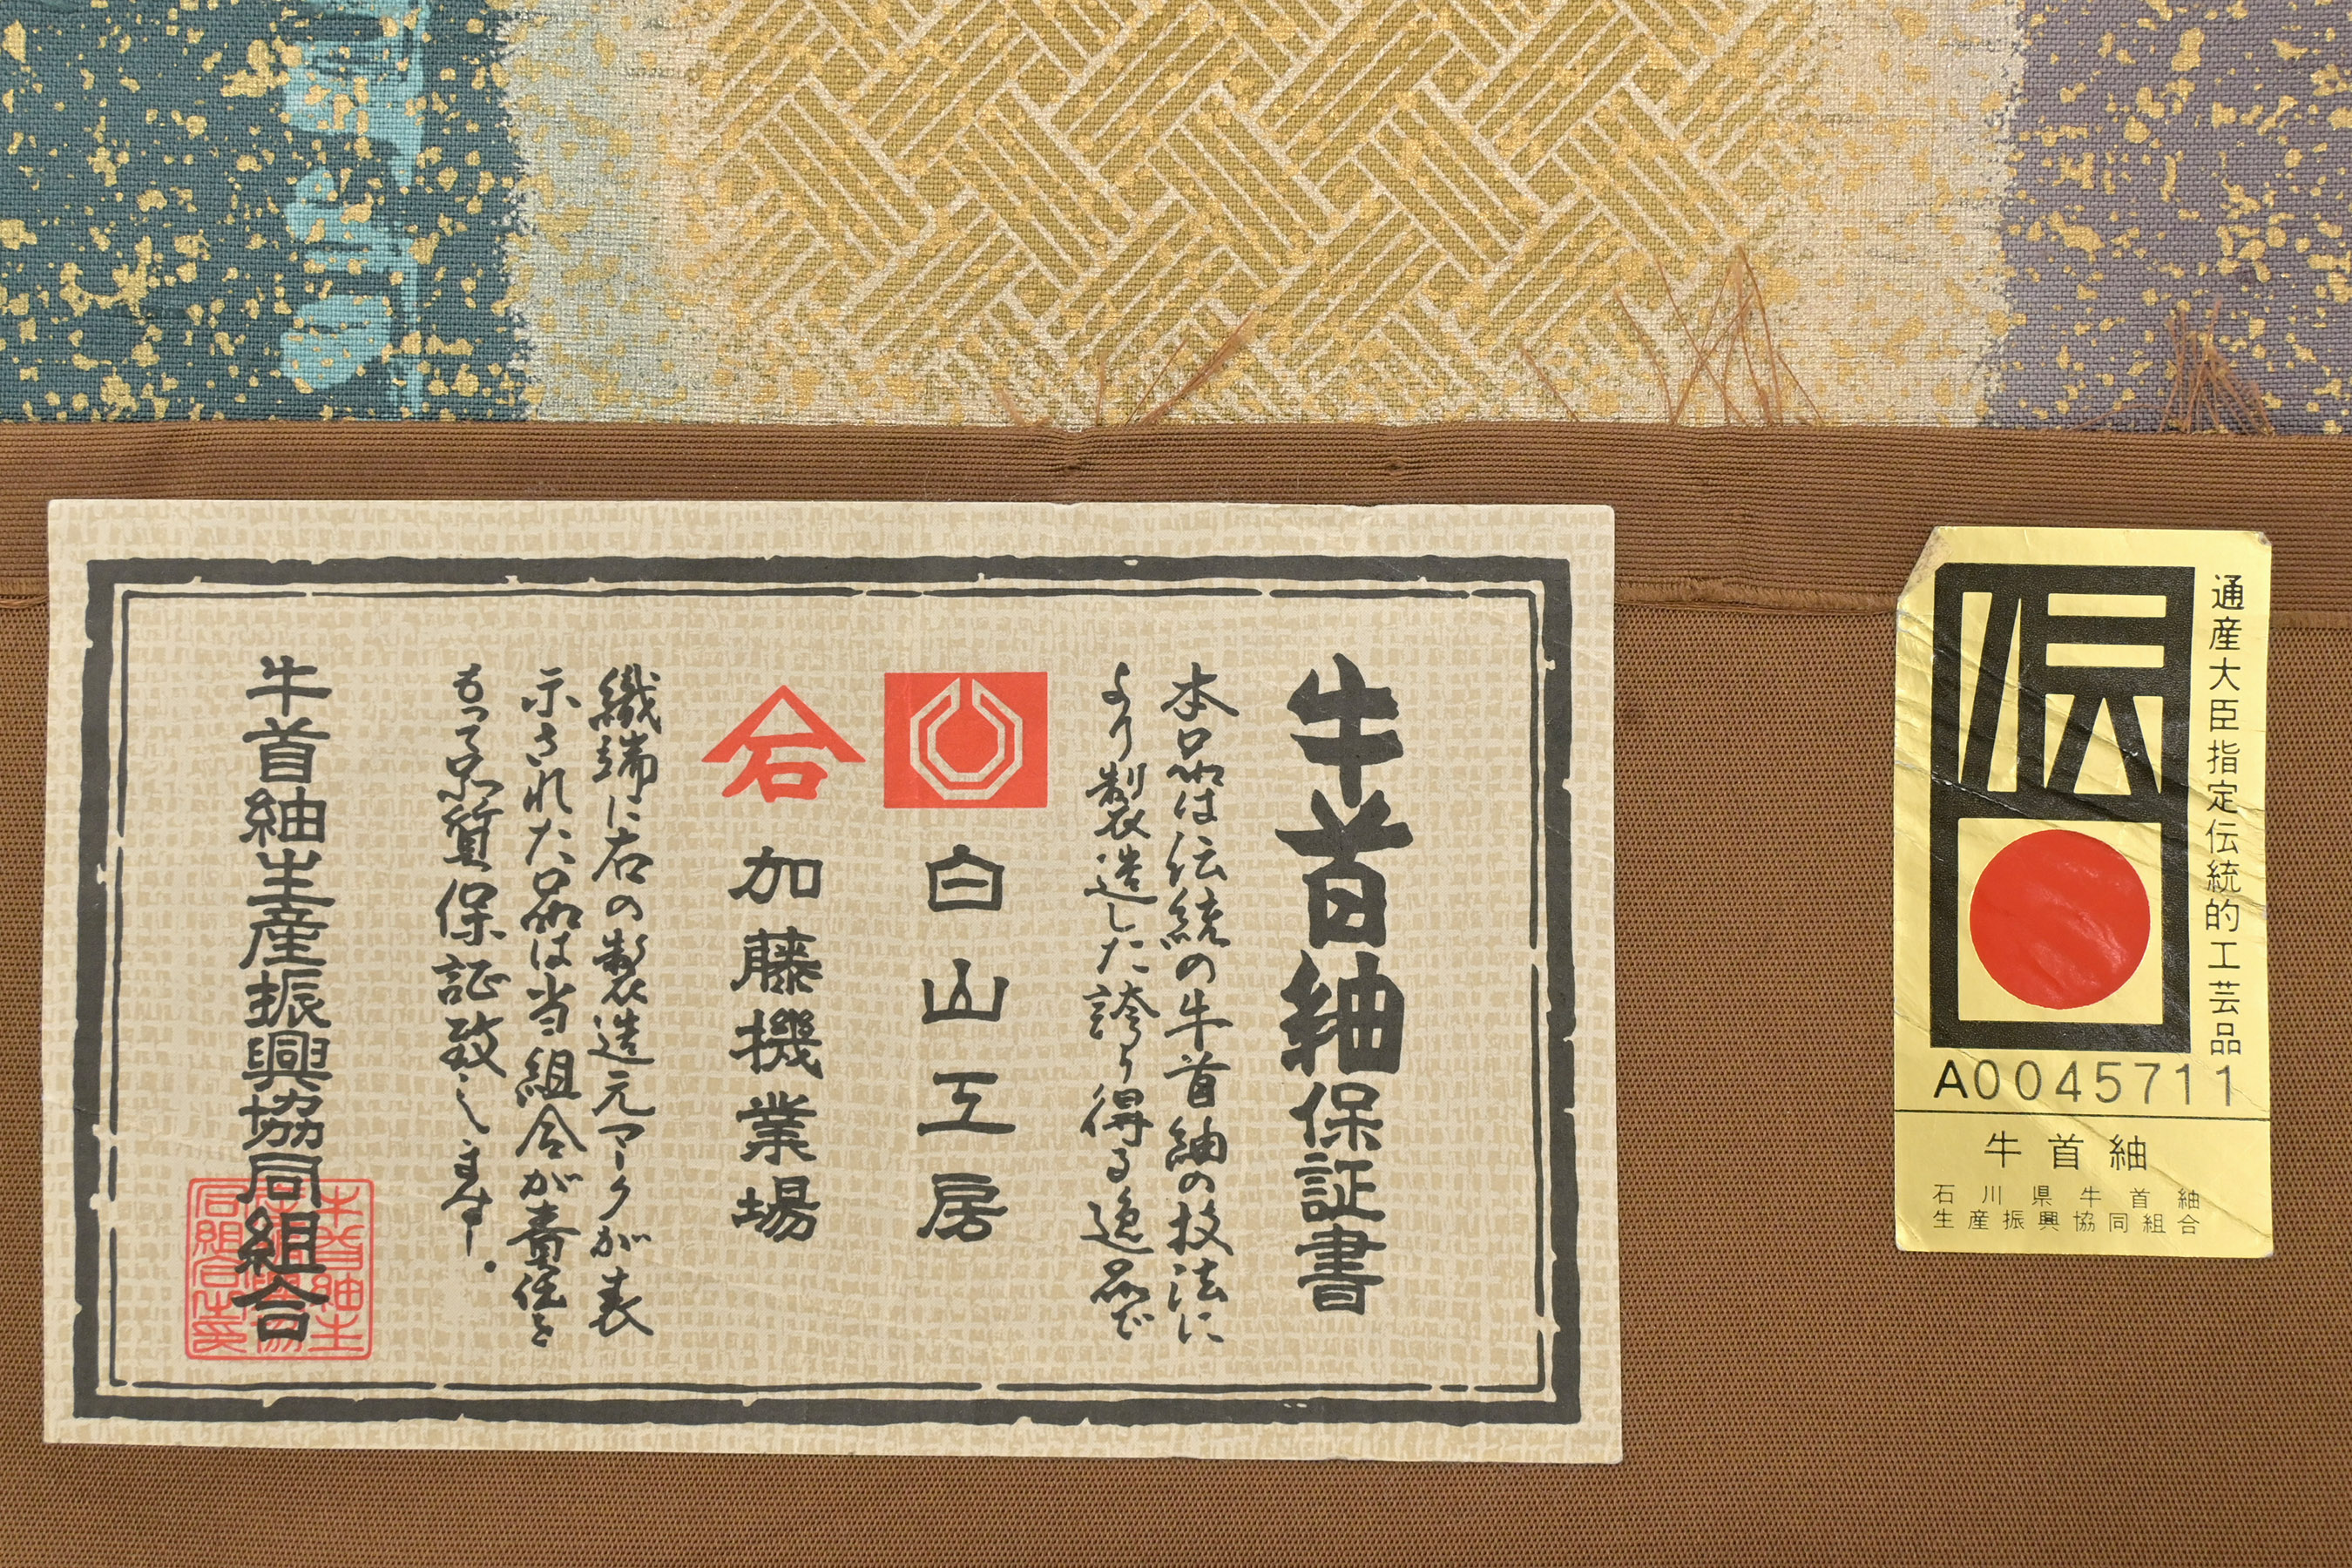 牛首紬保証書
本品は伝統の牛首紬の技法に
より製造した誇り得る逸品で
白山工房
石
加藤機業場
織端に右の製造元マークが表
示された品は当組合が責任を
もって品質保証致します。
牛首紬生産振興協同組合
伝
通産大臣指定伝統的工芸品
A0045711
牛首紬
石川県牛首紬
生産振興協同組合